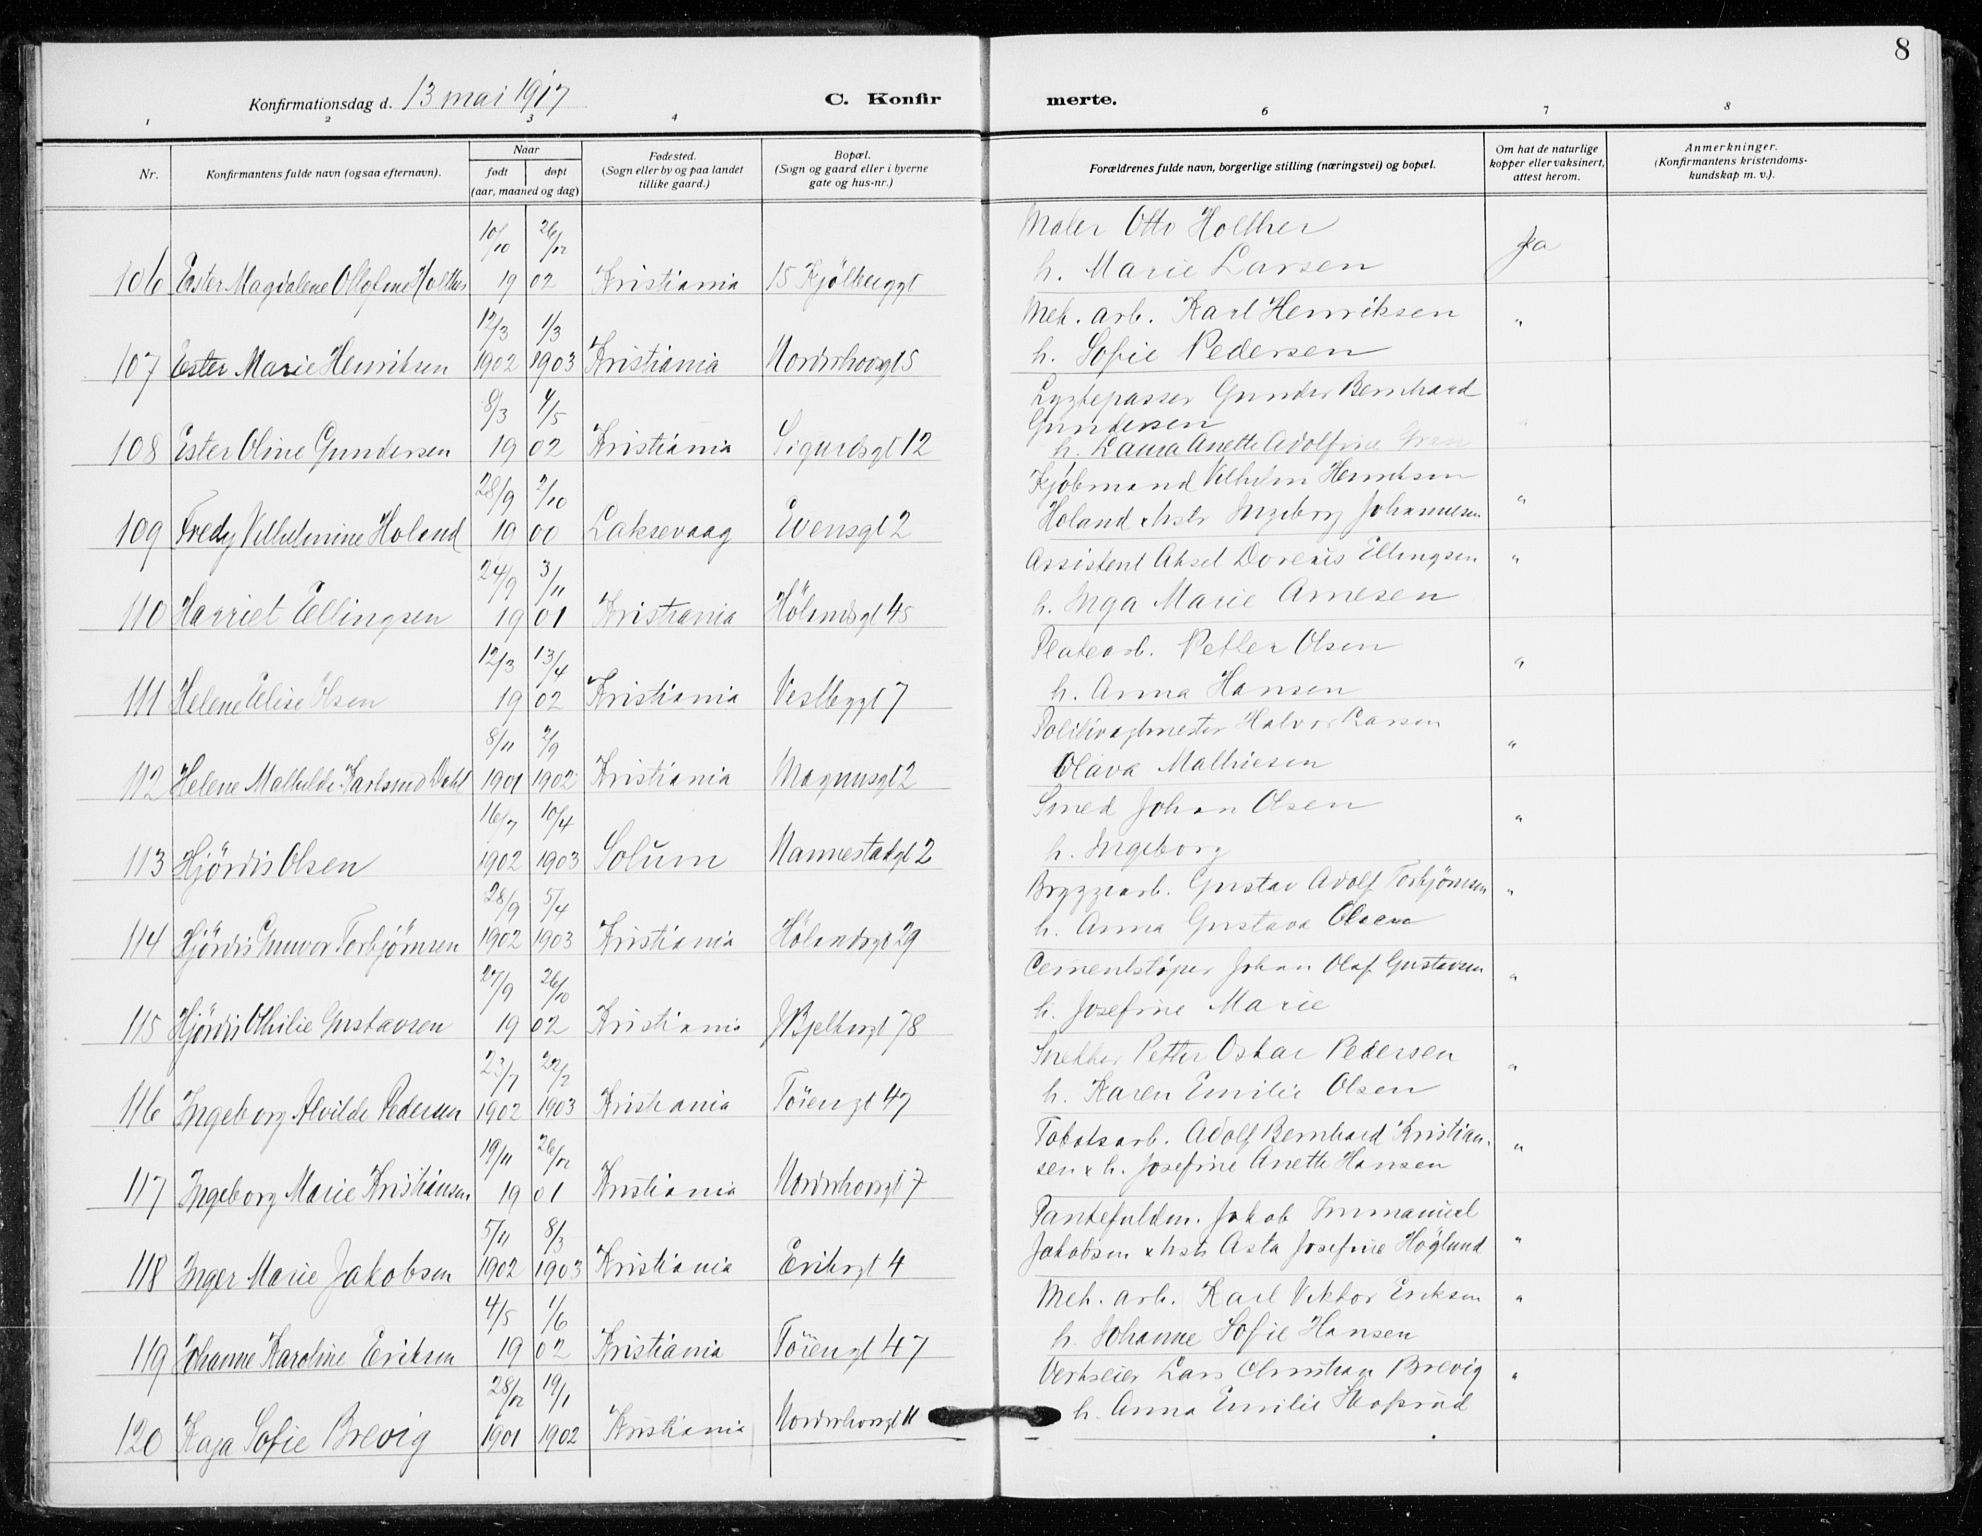 8
Konfirmationsdag d. 13 mai 1917
C. Konfir merte.
1 2 3 4 6 7 8
Nr. Konfirmantens fulde navn (ogsaa efternavn). Naar født døpt (aar, maaned og dag) Fødested. (Sogn eller by og paa landet tillike gaard.) Bopæl. (Sogn og gaard eller i byerne gate og hus-nr.) Forældrenes fulde navn, borgerlige stilling (næringsvei) og bopæl. Om hat de naturlige kopper eller vaksinert, attest herom. Anmerkninger. (Konfirmantens kristendoms-kundskap m. v.).
10/10 26/12 Maler Otto Holther Ja
106 Ester Magdalene Holther 19 02 Kristiania 15 Kjölberggt h. Marie Larsen
12/3 1/3 Mek. arb. Karl Henriksen "
107 Ester Marie Henriksen 1902 1903 Kristiania Nordrhovgt 5 h. Sofie Pedersen
8/3 4/5 Lygtepasser Gunder Bernhard
Gundersen
108 Ester Oline Gundersen 19 02 Kristiania Sigurdsgt 12 h. Laura Anette Adolfine Gran
28/9 2/10 Kjöbmand Vilhelm Henriksen "
109 Fredy Vilhelmine Holand 19 00 Laksevaag Evensgt 2 Holand & hstr Ingeborg Johannesen
24/9 3/11 Assistent Aksel Dorenis Ellingsen "
110 Harriet Ellingsen 19 01 Kristiania Hölandsgt 45 h. Inga Marie Arnesen
12/3 13/4 Platearb. Petter Olsen "
111 Helene Elise Olsen 19 02 Kristiania Vestbygt 7 h. Anna Hansen
8/11 2/9 Politivagtmester Halvor Larsen "
112 Helene Mathilde Karlsmo Dahl 1901 1902 Kristiania Magnusgt 2 Olava Mathiesen
16/7 10/4 Smed Johan Olsen "
113 Hjördis Olsen 1902 1903 Solum Nannestadgt 2 h. Ingeborg
28/9 5/4 Bryggearb. Gustav Adolf Torbjörnsen "
114 Hjördis Gunvor Torbjörnsen 1902 1903 Kristiania Hölandsgt 29 h. Anna Gustava Olsen
27/9 26/10 Cementstöper Johan Olaf Gustavsen "
115 Hjördis Othilie Gustavsen 19 02 Kristiania Kjølbergt 78 h. Josefine Marie
23/7 22/2 Snekker Petter Oskar Pedersen "
116 Ingeborg Alvilde Pedersen 1902 1903 Kristiania Töiengt 47 h. Karen Emilie Olsen
19/11 26/12 Tobaksarb. Adolf Bernhard Kristian-
117 Ingeborg Marie Kristiansen 19 01 Kristiania Nordrhovgt 7 sen & h. Josefine Anette Hansen "
5/11 8/3 Pantefuldm. Jakob Immanuel
118 Inger Marie Jakobsen 1902 1903 Kristiania Eriksgt 4 Jakobsen & hstr Asta Josefine Höglund "
4/5 1/6 Mek. arb. Karl Viktor Eriksen "
119 Johanne Karoline Eriksen 19 02 Kristiania Töiengt 47 h. Johanne Sofie Hansen
28/12 19/1 Verkseier Lars Christian Brevig "
120 Kaja Sofie Brevig 1901 1902 Kristiania Nordrhovgt 11 h. Anna Emilie Hofsrud